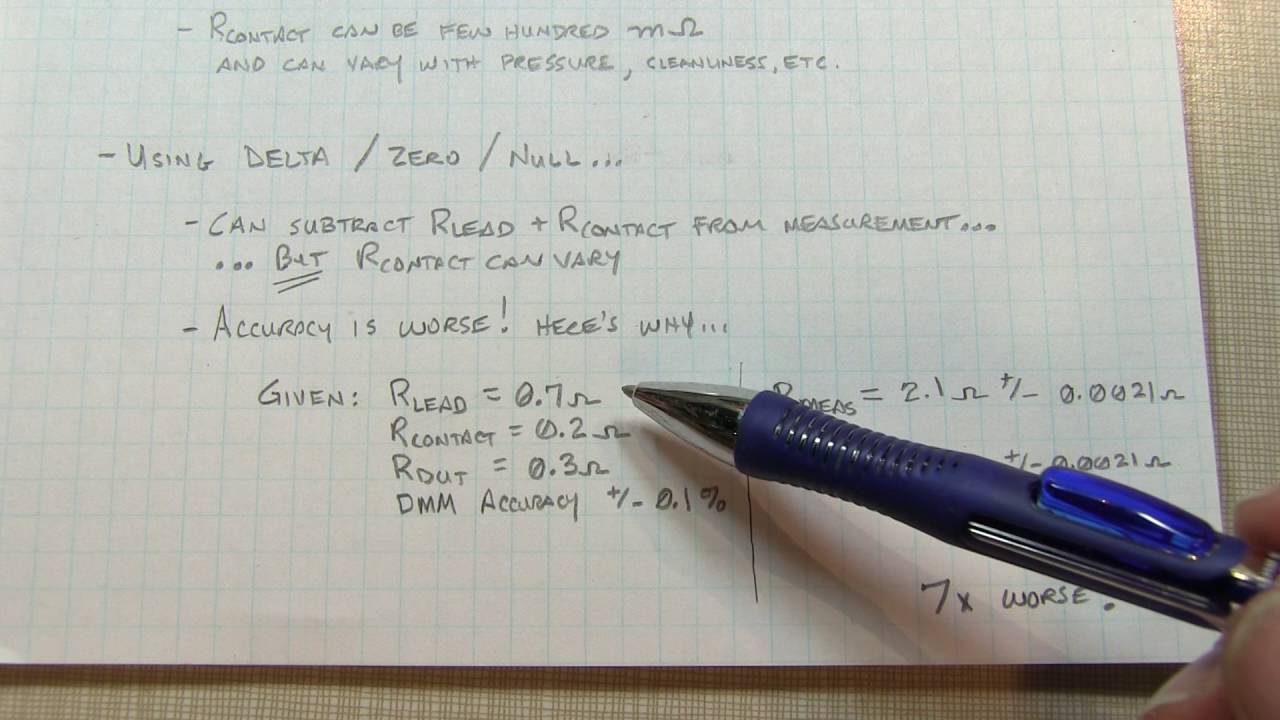 - RCONTACT CAN BE FEW HUNDRED mΩ
AND CAN VARY WITH PRESSURE, CLEANLINESS, ETC.
- USING DELTA / ZERO / NULL...
- CAN SUBTRACT RLEAD + RCONTACT FROM MEASUREMENT...
... BUT RCONTACT CAN VARY
- ACCURACY IS WORSE! HERE'S WHY...
GIVEN: RLEAD = 0.7Ω
RCONTACT = 0.2Ω
RDUT = 0.3Ω
DMM ACCURACY +/- 0.1%
RMEAS = 2.1Ω +/- 0.0021Ω
+/- 0.0021Ω
7x WORSE.